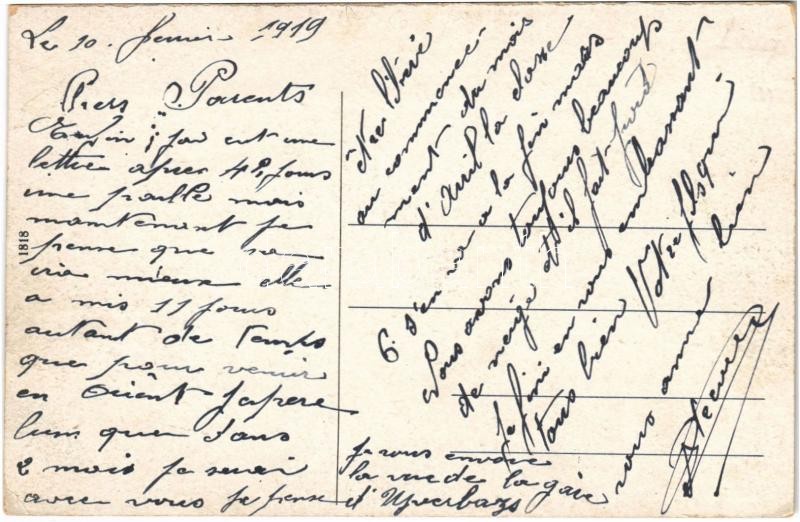 Le 10. fevrier 1919
Chers Parents
Enfin j'ai eut une
lettre apres 42 jours
une paille mais
maintenant je
pense que sa
iria mieux elle
a mis 11 jours
autant de temps
que pour venir
en Orient japere
bien que dans
2 mois je serai
avec vous je pense
être libéré
au commence-
ment du mois
d'avril la classe
6. s'en va a la fin mars
Nous avons toujours beaucoup
de neige et il fait froid
Je fini en vous embrassant
tous bien Votre fils qui
vous aime bien
je vous envoie
la vue de la gare
d'Uyvarbazs
1818